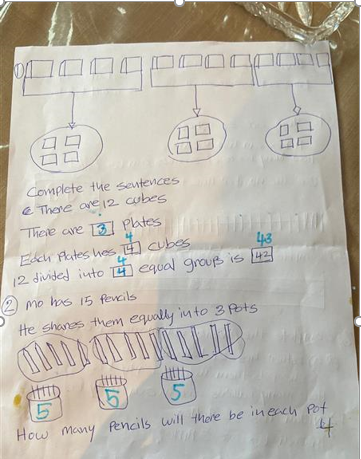 ①
Complete the sentences
There are 12 cubes
There are 3 Plates
4
Each Plates has 4 cubes
4 43
12 divided into 4 equal groups is 42
② Mo has 15 Pencils
He shares them equally into 3 Pots
5 5 5
How many Pencils will there be in each Pot
4